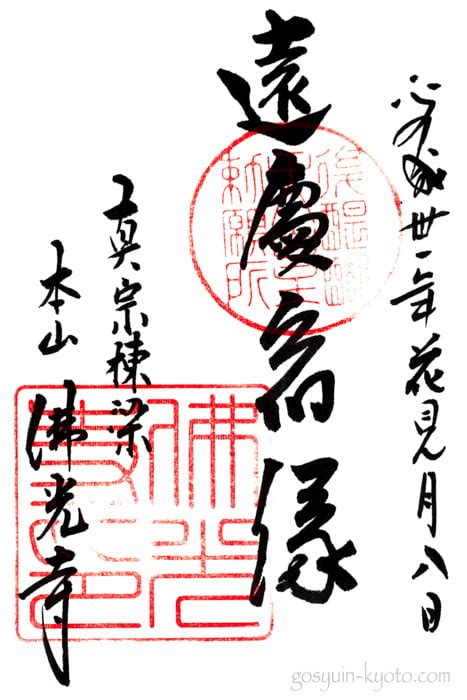 平成丗一年花見月八日
遠慶宿縁
後醍醐
天皇
勅願所
真宗棟梁
本山 佛光寺
佛光
寺印
gosyuin-kyoto.com